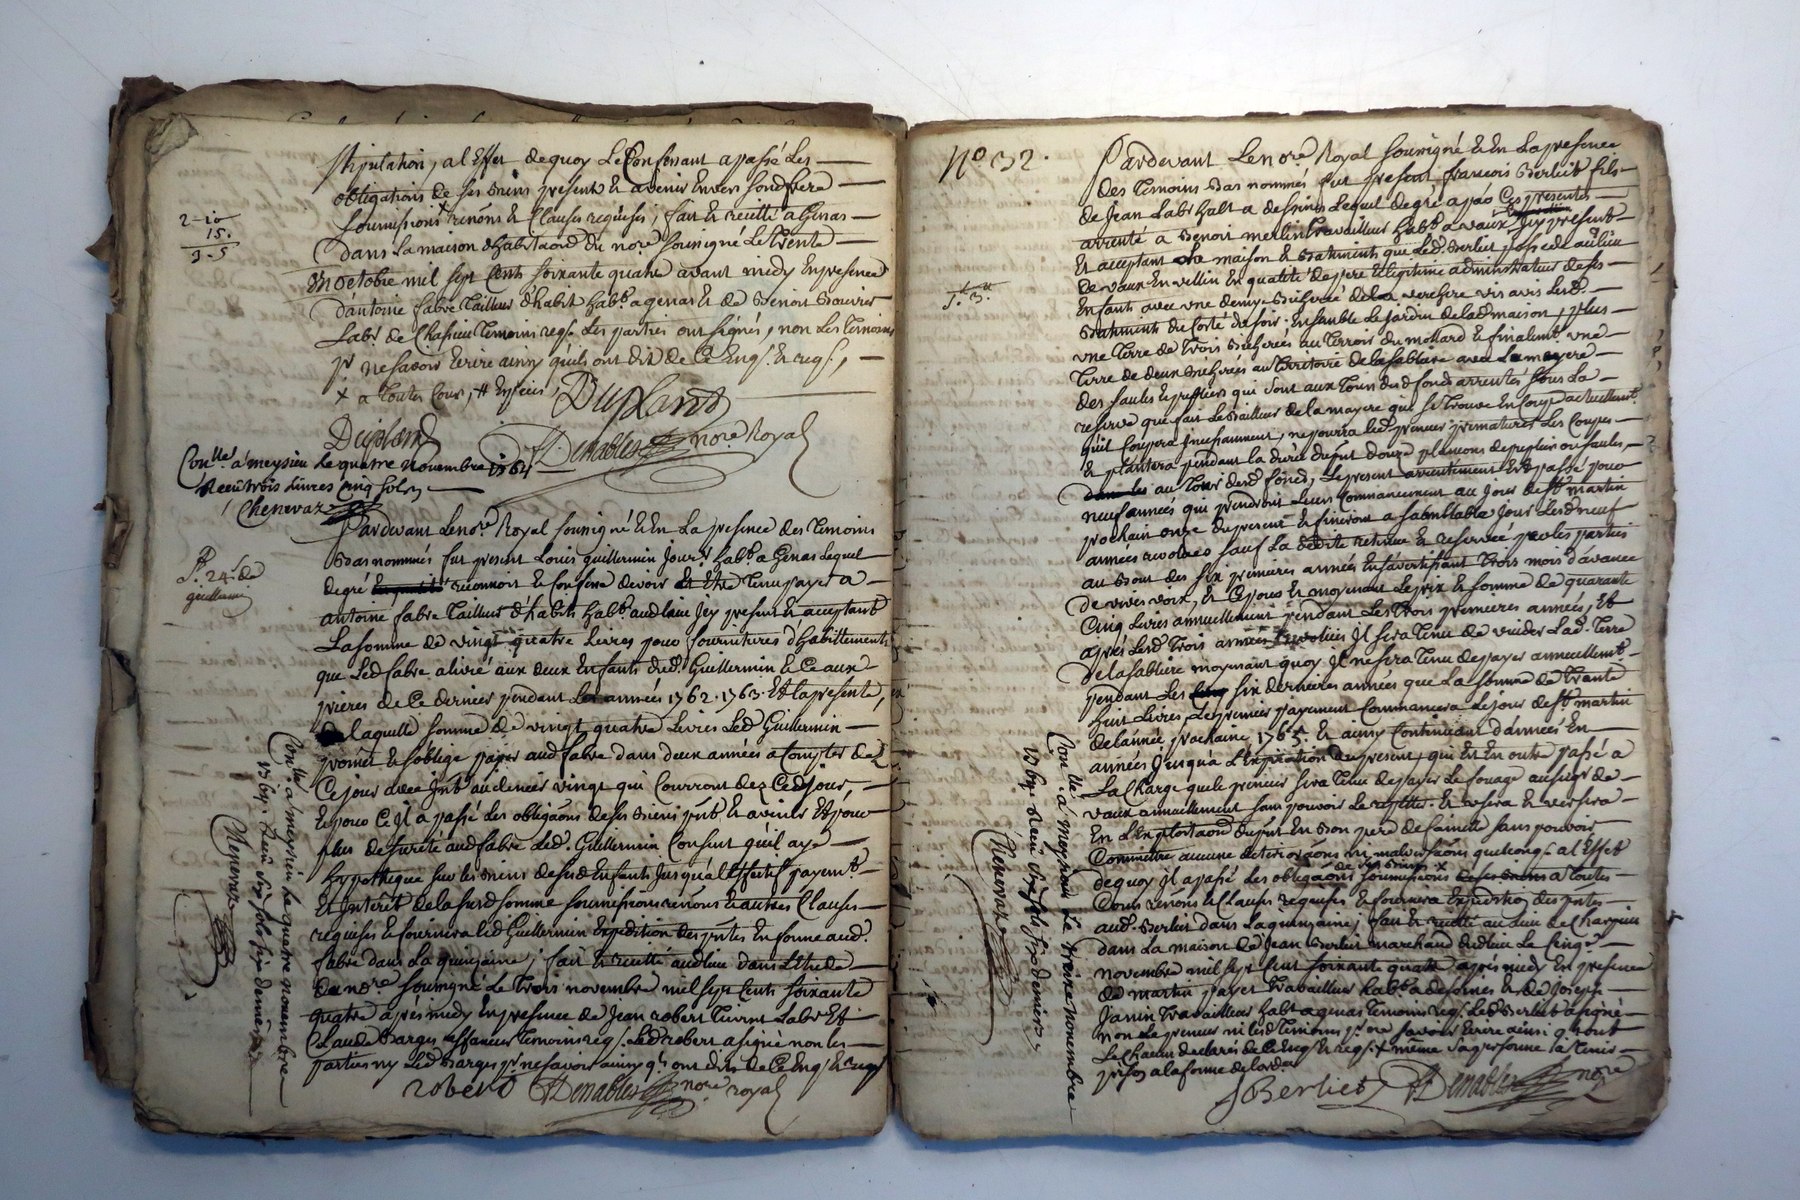 stipulation, a l'Effet de quoy Le Confessant a passé Les
obligations de ses biens present & avenir Envers sond frere
soumissions x renôns & Clauses requises, fait & recitté a Genas
dans La maison d'habitaôn du nore. soussigné Le trente
En octobre mil sept Cents soixante quatre avant midy En presence
d'antoine fabre Tailleur d'habit habt. a genas & de Benoit
Labr. de Chassieu Temoins reqs. Les parties ont signés, non Les Temoins
pr. ne savoir Ecrire ainsy qu'ils ont dit de Ce Enqs. & reqs.,
x a toutes Cours,
Dupland
Dupland Denables nore Royal
2-10
15.
3-5
Conllé. a meysieu le quatre novembre 1764
Receu trois Livres Cinq sols
Chenevaz
Pardevant Le nore. Royal soussigné & En La presence des Temoins
Bas nommés fut present Louis guillermin Jourr. habt. a Genas Lequel
degré reconnoit & Confesse devoir & Etre Tenu payer a
antoine fabre Tailleur d'habits habt. aud lieu Icy present & acceptant
La somme de vingt quatre Livres pour fournitures d'habillements
que Led fabre a livré aux deux Enfants dud. Guillermin & Ce aux
prieres de Ce dernier pendant Les années 1762. 1763. Et la presente,
de laquelle somme de vingt quatre Livres Led Guillermin
promet & s'oblige payer aud fabre dans deux années a Compter de
Ce jour avec Intt. au denier vingt qui Courront dez Ce Jour,
Et pour Ce Il a passé Les obligaôns de ses Biens pnt & avenir Et pour
plus de sureté aud fabre Led. Guillermin Consent qu'il aye
hypotheque sur les Biens desd Enfants Jusqu'al Effectif payemt.
Et Interêt de lasusd somme soumissions renôns & autres Clauses
requises & fournira Led Guillermin Expedition des pntes En forme aud.
fabre dans La quinzaine, fait & recitté aud lieu dans L'Etude
du nore soussigné Le Trois novembre mil sept Cents soixante
quatre après midy En presence de Jean robert Labr Et
Claude Barges affaneur Temoins reqs. Led robert a signé non les
parties ny Led Barges pr. ne savoir ainsy qs. ont dits de Ce Enqs. & reqs
robert Denables nore. royal
Pr. 24. de
guillermin
Conllé. a meysieu Le quatre novembre
Receu six sols six deniers
Chenevaz
No 32.
Pardevant Le nore. Royal soussigné & En La presence
Des Temoins Bas nommés fut present francois Berliet fils
de Jean Labr habt a Lequel degré a Ces presentes
arrenté a Benoit merlin Travailleur habt. a vaux Icy present
Et acceptant La maison & Batiments que Led. Berliet possede au lieu
De vaux En vellin En qualité de pere & legitime administrateur de ses
Enfants avec vne demy Bicherée de La verchere vis avis Lesd.
Batiments du Coté de soir. Ensemble Le Jardin de lad maison, plus
vne Terre de Trois Bicherées au Terroir du mollard & finalemt. vne
Terre de deux Bicherées au Territoire de la sabliere avec La mayere
des saules & peupliers qui sont aux Tours desd fonds arrentés sous La
reserve que fait Le Bailleur de la mayere qui se Trouve En Coupe actuellemt.
qu'il Coupera Incessamment, ne pourra led preneur Les Couper
& plantera pendant la durée du pnt douze plançons de peuplier ou saules,
au Tour desd fonds, Le present arrentement Est passé pour
neuf années qui prendront Leur Commancement au Jour de st martin
prochain onze du present & finiront a semblable Jour Lesd neuf
années revolües sauf La & reservée par les parties
au Bout des six premieres années En s'avertissant Trois mois d'avance
De vive voix, & Ce pour & moyenant Le prix & somme de quarante
Cinq Livres annuellement pendant Les Trois premieres années, Et
après Lesd Trois années revolües Il sera Tenu de vuider Lad. Terre
De la sabliere moyenant quoy Il ne sera Tenu de payer annuellemt.
pendant Les six dernieres années que La somme de Trante
huit Livres, Le premier payement Commancera Le jour de st martin
de l'année prochaine 1765. & ainsy Continuer d'années En
années Jusqu'à L'Expiration du present, qui Est En outre passé a
La Charge que le preneur sera Tenu de payer Le au seigr de
vaux annuellement sans pouvoir Le repetter. & usera & versera
En L'Exploitaôn du pnt En Bon pere de famille sans pouvoir
Commettre aucune deterioraôns ni malversaôns quelconqs. al Effet
de quoy Il a passé Les obligaôns de ses Biens soumissions a toutes
Cours renôns & Clauses requises & fournira Expedition des pntes
aud. Berliet dans La quinzaine, fait & recitté au lieu de Chassieu
dans La maison de Jean Berliet marchand dud lieu Le Cinqe.
novembre mil sept Cent soixante quatre après midy En presence
de martin payet Travailleur habt. a & de Joseph
Janin Travailleur habt a genas Temoins reqs. Led Berliet a signé
non Le preneur ni Lesd Temoins pr. ne savoir Ecrire ainsi q. s ont
Le Chacun declarés de Ce Enqs & reqs. x même sa personne a Tenir
prison a la forme de lord.
J Berliet Denables nore
Conllé. a Meysieu Le treize novembre
Receu six sols six deniers
Chenevaz